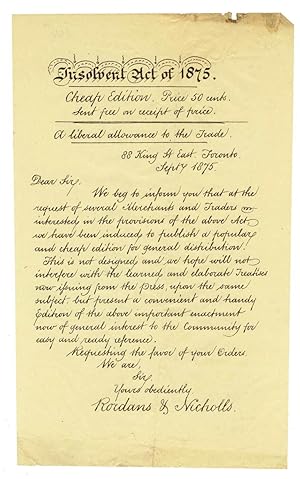 Insolvent Act of 1875.
Cheap Edition. Price 50 cents.
Sent free on receipt of price.
A liberal allowance to the Trade.
88 King St East. Toronto.
Sept 7 1875.
Dear Sir,
We beg to inform you that at the
request of several Merchants and Traders
interested in the provisions of the above Act,
we have been induced to publish a popular
and cheap edition for general distribution.
This is not designed and we hope will not
interfere with the learned and elaborate Treatises
now issuing from the Press, upon the same
subject. but present a convenient and handy
Edition of the above important enactment
now of general interest to the Community for
easy and ready reference.
Requesting the favor of your Orders.
We are,
Sir
Yours obediently.
Rordans & Nicholls.